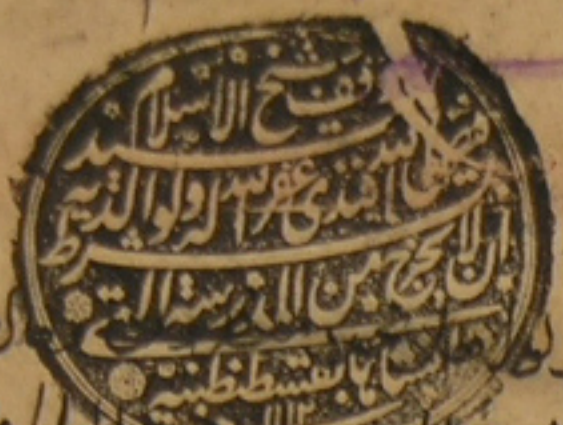 وقف شيخ الاسلام
السيد فيض الله افندى غفر الله له ولوالديه
بشرط ان لا يخرج من المدرسة التى
انشاها بقسطنطينية
١١١٢